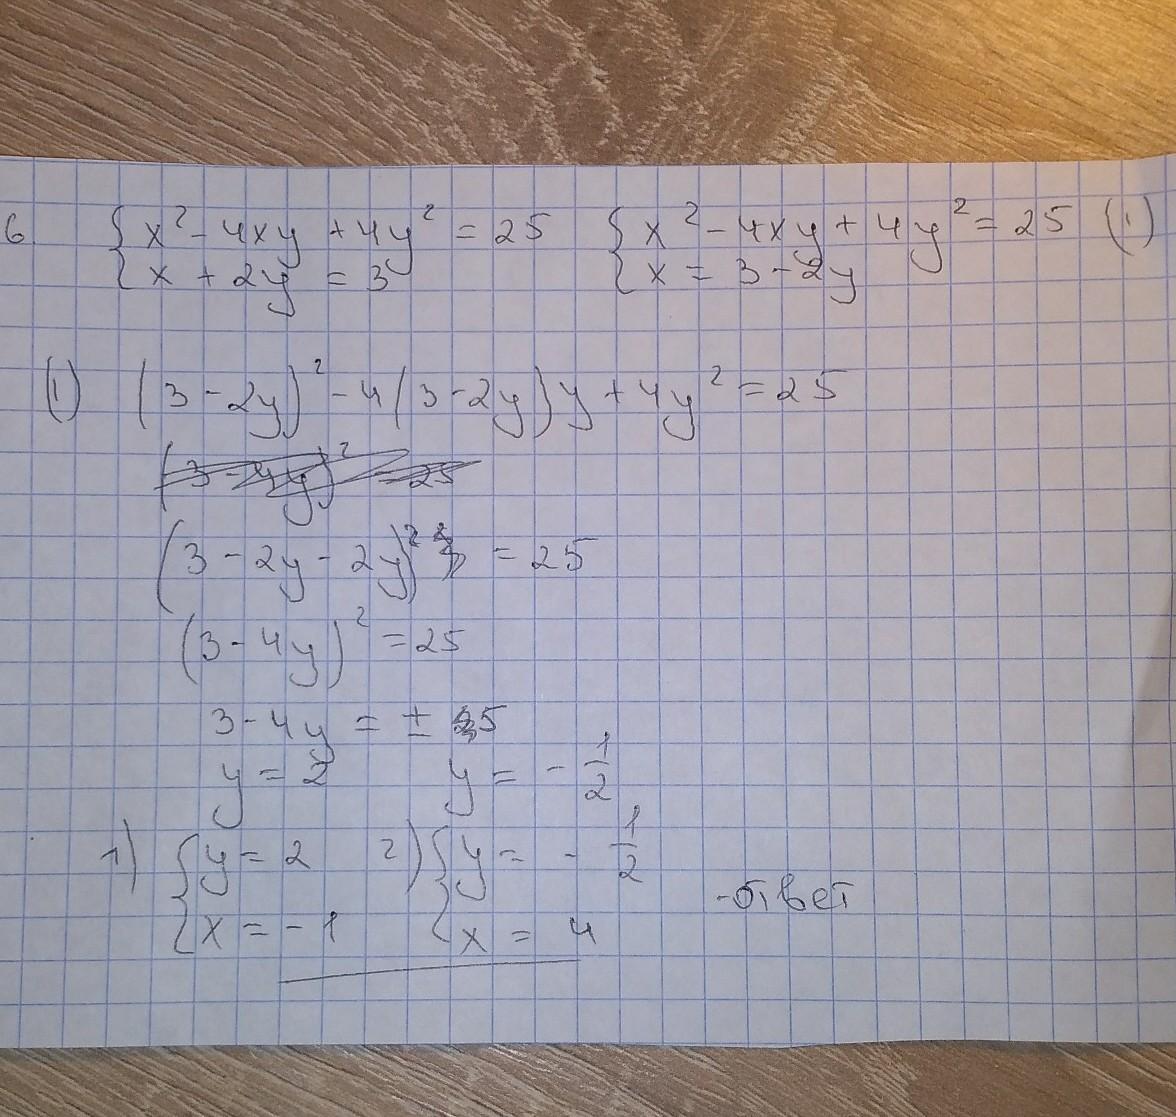 6 { x² - 4xy + 4y² = 25 { x² - 4xy + 4y² = 25 (1)
{ x + 2y = 3 { x = 3 - 2y
(1) (3 - 2y)² - 4(3 - 2y)y + 4y² = 25
(3 - 4y)² = 25
(3 - 2y - 2y)² = 25
(3 - 4y)² = 25
3 - 4y = ± 5
y = 2 y = - 1/2
1) { y = 2 2) { y = - 1/2
{ x = - 1 { x = 4 - ответ